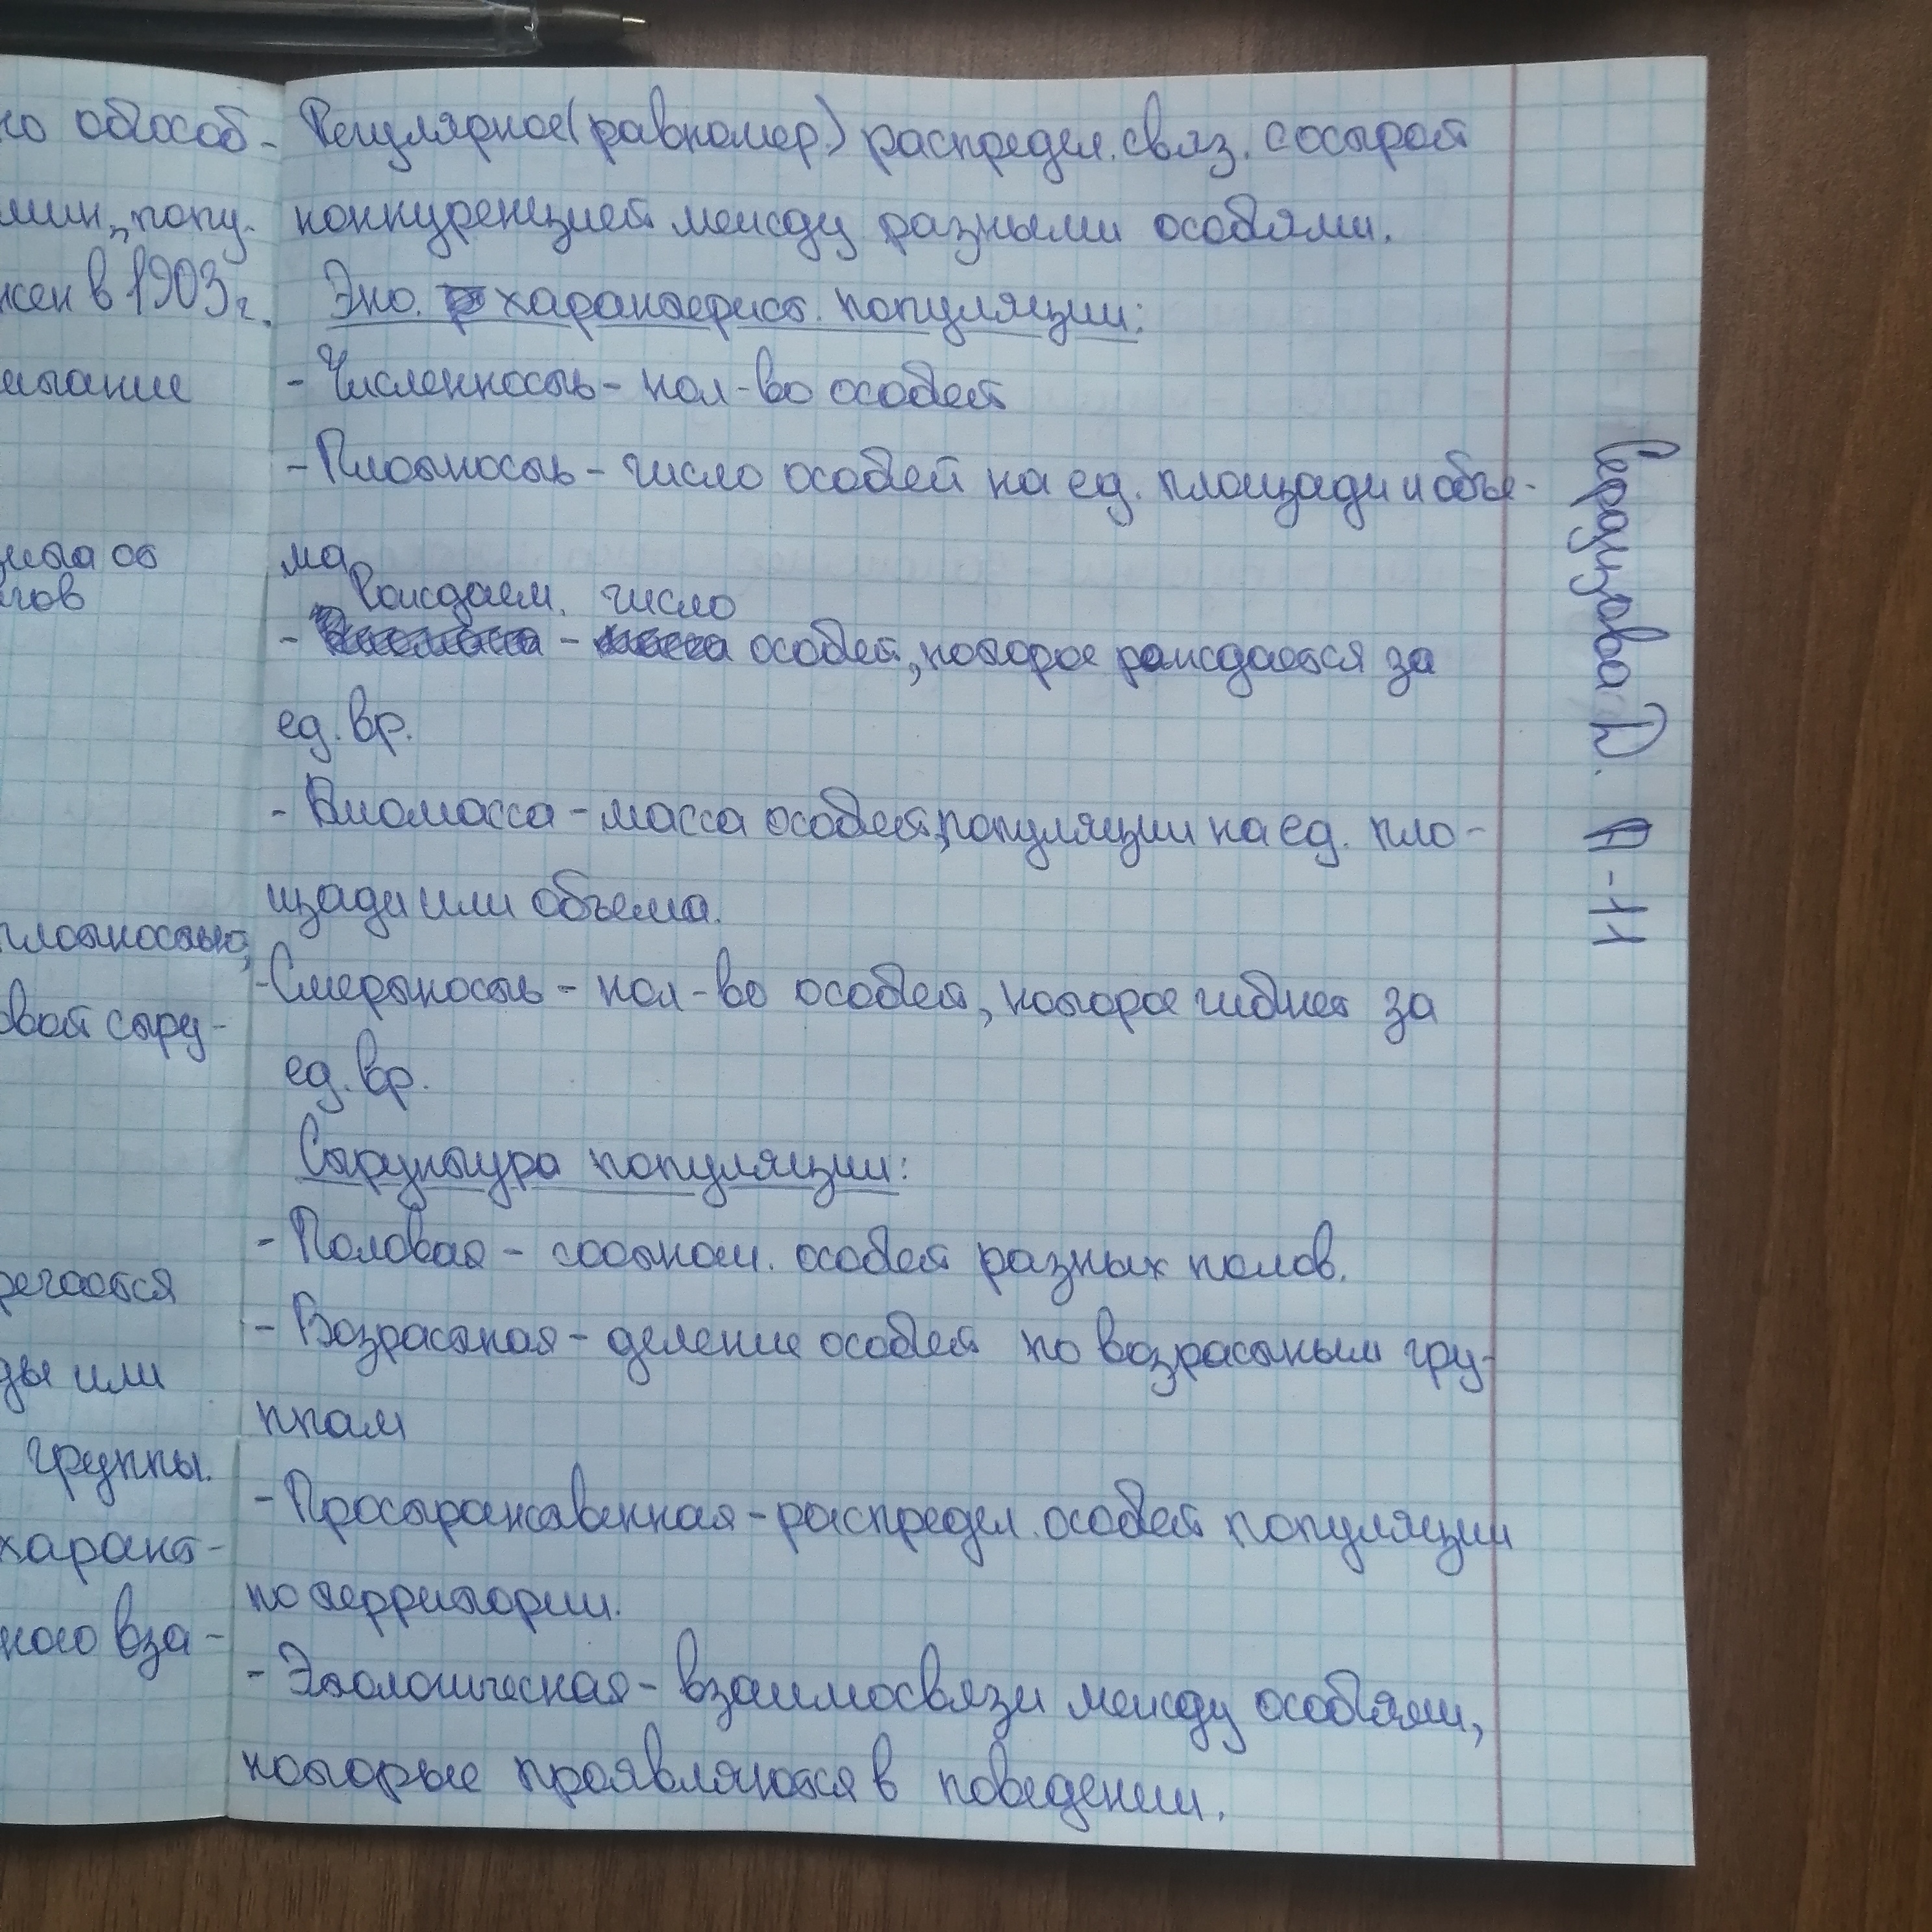 но обособ-
мин „попу-
жен в 1903 г.
итание
гов
плотностью,
овой стру-
речается
ды или
группы.
характ-
ного вза-
Регулярное (равномер.) распредел. связ. с острой
конкуренцией между разными особями.
Эко. характерист. популяции:
- Численность - кол-во особей
- Плотность - число особей на ед. площади и объё-
ма.
Рождаем. число
- - особей, которое рождается за
ед. вр.
- Биомасса - масса особей, популяции на ед. пло-
щади или объема.
- Смертность - кол-во особей, которое гибнет за
ед. вр.
Структура популяции:
- Половая - соотнош. особей разных полов.
- Возрастная - деление особей по возрастным гру-
ппам
- Пространственная - распредел. особей популяции
по территории.
- Этологическая - взаимосвязи между особями,
которые проявляются в поведении.
А-11